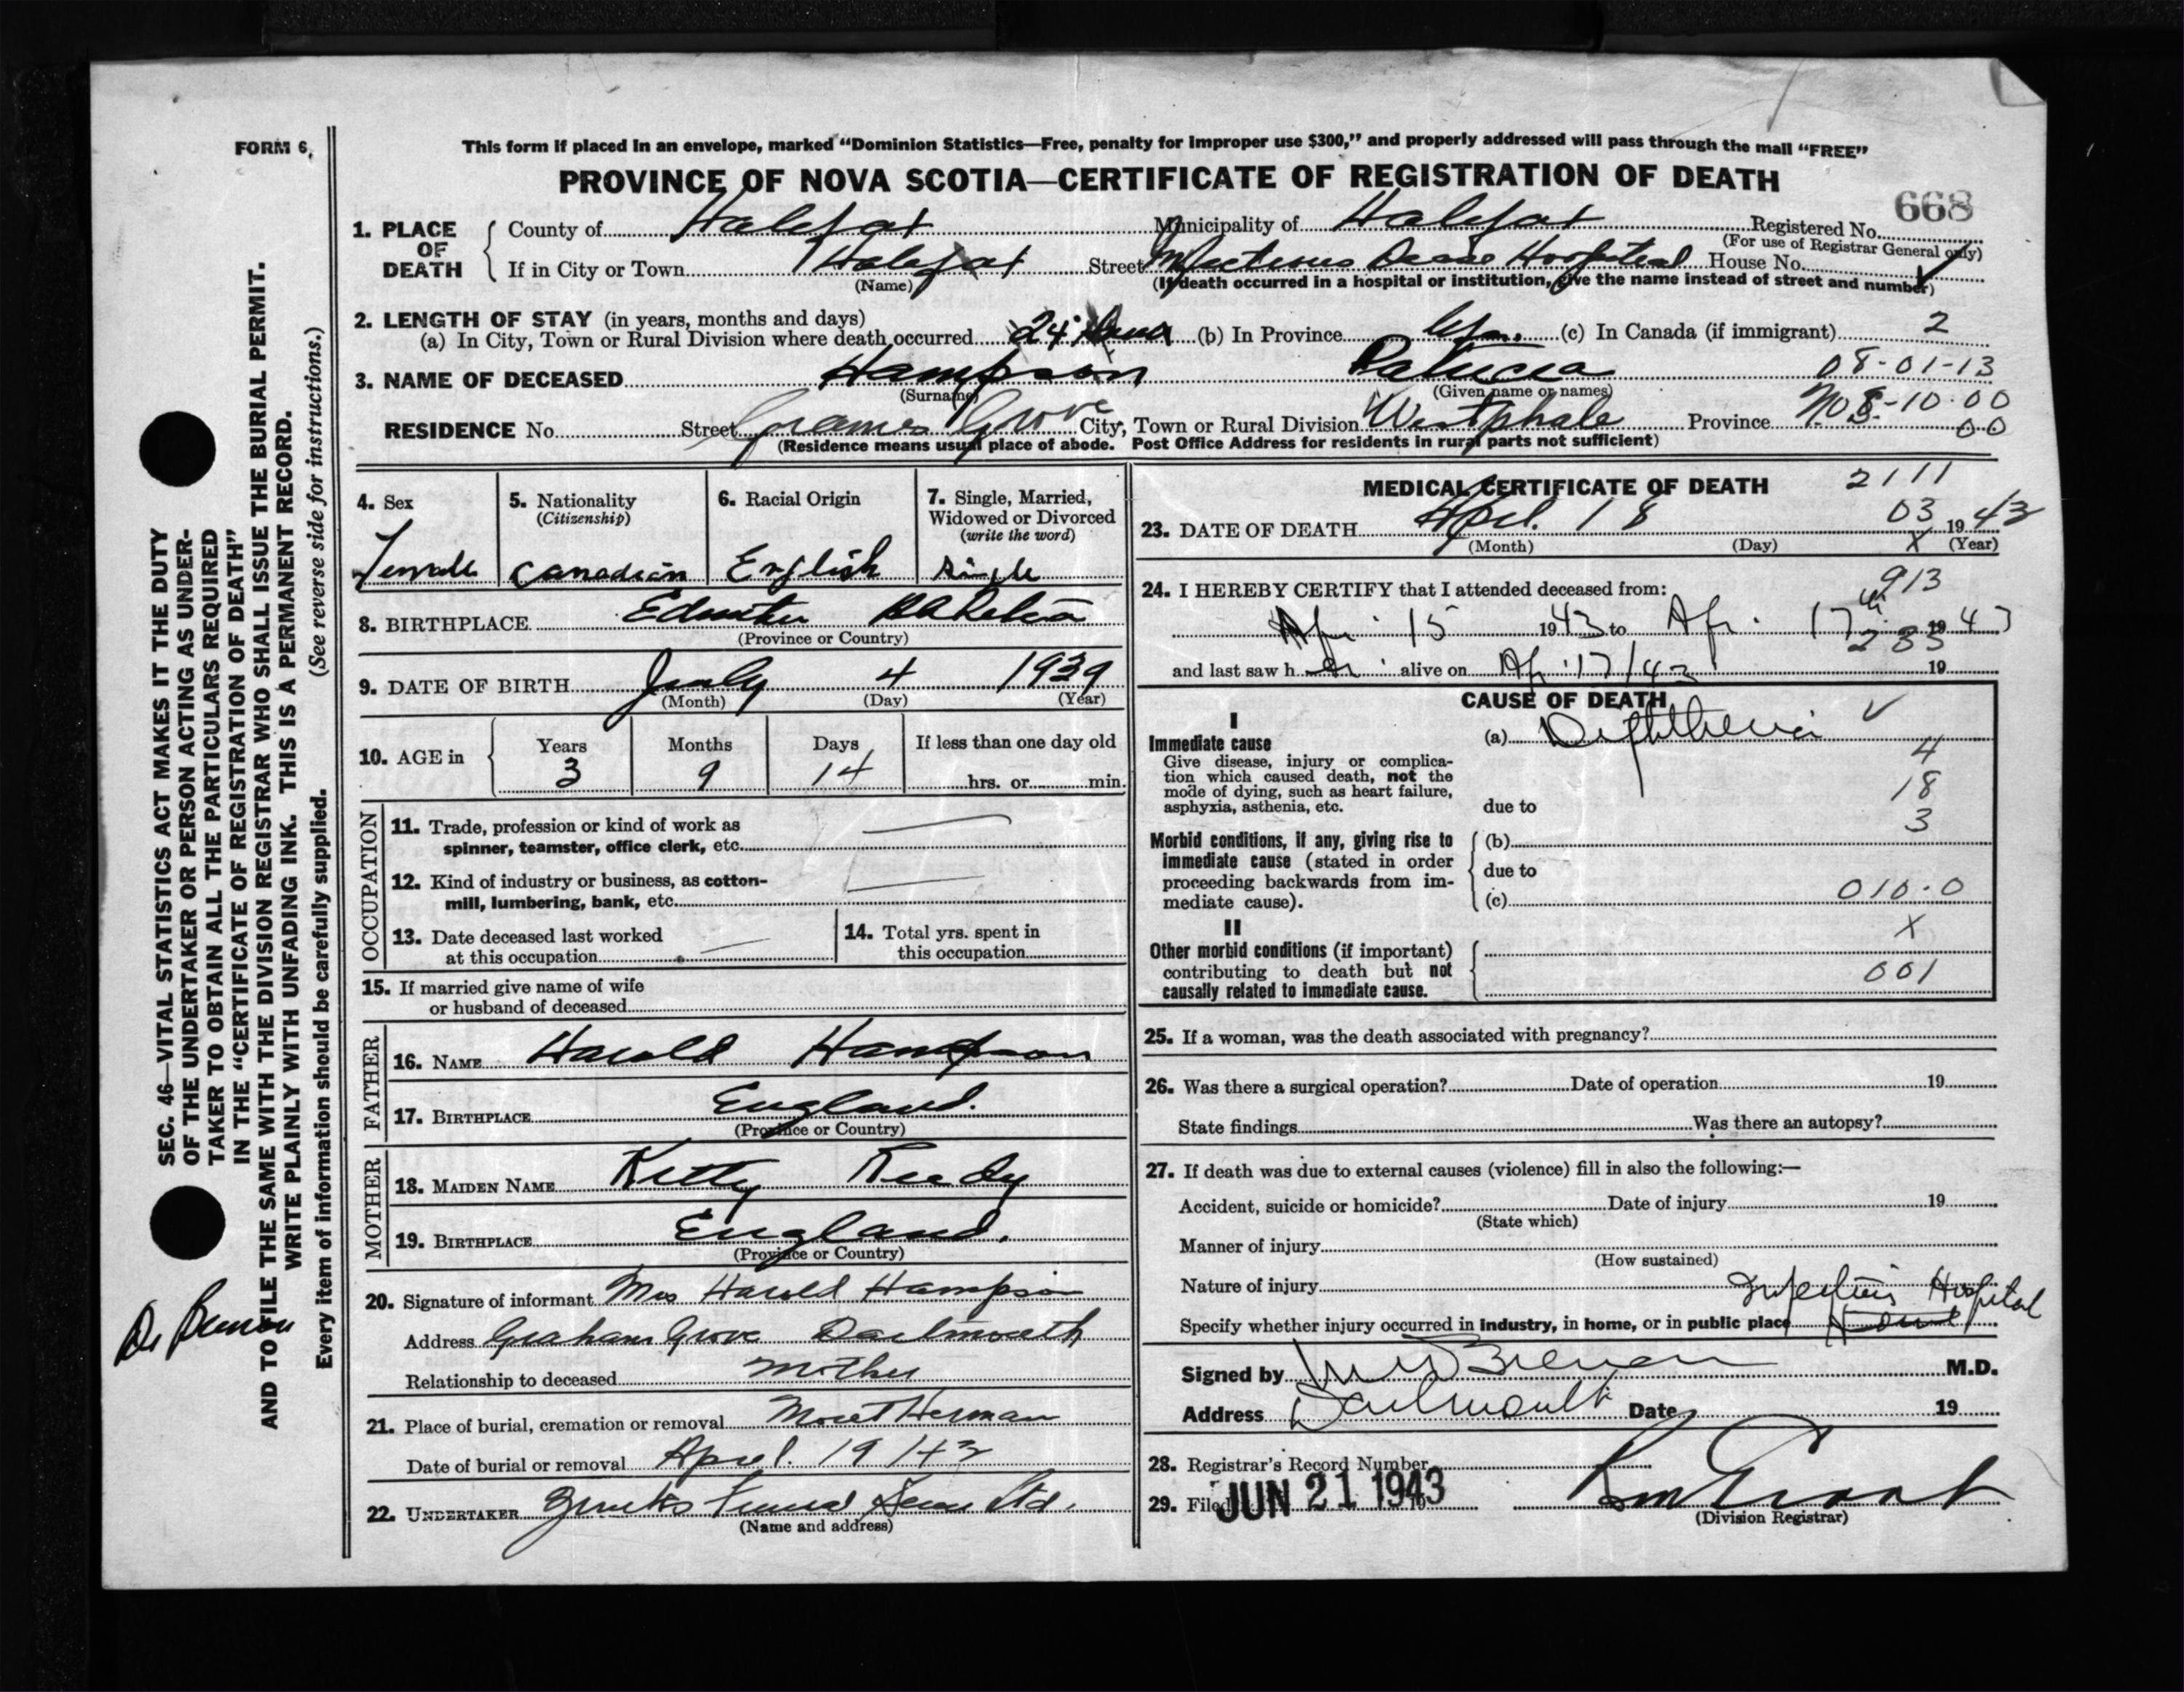 FORM 6.
This form if placed in an envelope, marked "Dominion Statistics—Free, penalty for improper use $300," and properly addressed will pass through the mail "FREE"
PROVINCE OF NOVA SCOTIA—CERTIFICATE OF REGISTRATION OF DEATH
668
1. PLACE OF DEATH
County of Halifax Municipality of Halifax Registered No.
(For use of Registrar General only)
If in City or Town Halifax Street Infectious Hospital House No.
(Name) (If death occurred in a hospital or institution, give the name instead of street and number)
2. LENGTH OF STAY (in years, months and days)
(a) In City, Town or Rural Division where death occurred 24 (b) In Province (c) In Canada (if immigrant) 2
3. NAME OF DECEASED Hampson Patricia 08-01-13
(Surname) (Given name or names)
RESIDENCE No. Street Grove City, Town or Rural Division Westphale Province N.S. 10.00
00
(Residence means usual place of abode. Post Office Address for residents in rural parts not sufficient)
4. Sex
Female
5. Nationality
(Citizenship)
Canadian
6. Racial Origin
English
7. Single, Married, Widowed or Divorced
(write the word)
Single
8. BIRTHPLACE
(Province or Country)
9. DATE OF BIRTH July 4 1939
(Month) (Day) (Year)
10. AGE in Years Months Days If less than one day old
3 9 14 hrs. or min.
OCCUPATION
11. Trade, profession or kind of work as
spinner, teamster, office clerk, etc.
12. Kind of industry or business, as cotton-
mill, lumbering, bank, etc.
13. Date deceased last worked
at this occupation
14. Total yrs. spent in
this occupation
15. If married give name of wife
or husband of deceased
FATHER
16. NAME Harold Hampson
17. BIRTHPLACE England.
(Province or Country)
MOTHER
18. MAIDEN NAME Kitty Reedy
19. BIRTHPLACE England.
(Province or Country)
20. Signature of informant Mrs Harold Hampson
Address Grahams Grove Dartmouth
Relationship to deceased Mother
21. Place of burial, cremation or removal Mount Herman
Date of burial or removal April. 19/43
22. UNDERTAKER Zinck's Ltd.
(Name and address)
MEDICAL CERTIFICATE OF DEATH
2111
23. DATE OF DEATH April. 18 03 1943
(Month) (Day) X (Year)
24. I HEREBY CERTIFY that I attended deceased from:
913
Apr. 15 1943 to Apr. 17th 1943
283
and last saw her alive on Apr 17/43 19
CAUSE OF DEATH
I
Immediate cause
Give disease, injury or complica-
tion which caused death, not the
mode of dying, such as heart failure,
asphyxia, asthenia, etc.
(a) Diphtheria
4
18
due to
3
Morbid conditions, if any, giving rise to
immediate cause (stated in order
proceeding backwards from im-
mediate cause).
(b)
due to
(c)
010.0
X
II
Other morbid conditions (if important)
contributing to death but not
causally related to immediate cause.
001
25. If a woman, was the death associated with pregnancy?
26. Was there a surgical operation? Date of operation 19
State findings Was there an autopsy?
27. If death was due to external causes (violence) fill in also the following:—
Accident, suicide or homicide? Date of injury 19
(State which)
Manner of injury
(How sustained)
Nature of injury
Infectious Hospital
Specify whether injury occurred in industry, in home, or in public place Home
Signed by M.D.
Address Dartmouth Date 19
28. Registrar's Record Number
29. Filed JUN 21 1943 19
(Division Registrar)
SEC. 46—VITAL STATISTICS ACT MAKES IT THE DUTY
OF THE UNDERTAKER OR PERSON ACTING AS UNDER-
TAKER TO OBTAIN ALL THE PARTICULARS REQUIRED
IN THE "CERTIFICATE OF REGISTRATION OF DEATH"
AND TO FILE THE SAME WITH THE DIVISION REGISTRAR WHO SHALL ISSUE THE BURIAL PERMIT.
WRITE PLAINLY WITH UNFADING INK. THIS IS A PERMANENT RECORD.
Every item of information should be carefully supplied. (See reverse side for instructions.)